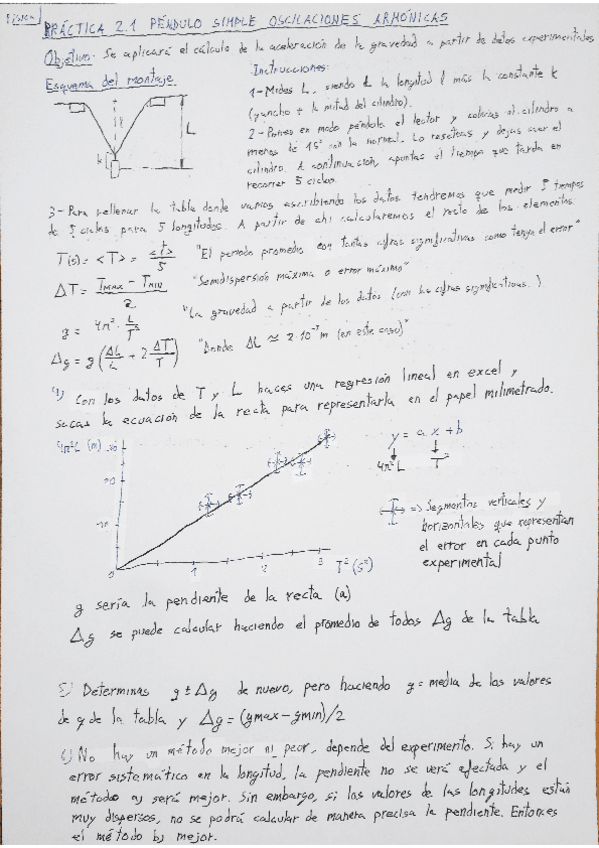 FÍSICA
PRÁCTICA 2.1 PÉNDULO SIMPLE OSCILACIONES ARMÓNICAS
Objetivo: Se aplicará el cálculo de la aceleración de la gravedad a partir de datos experimentales
Esquema del montaje
L
k
Instrucciones:
1-Mides L, siendo L la longitud l más la constante k
(gancho + la mitad del cilindro).
2-Pones en modo péndulo el lector y colocas el cilindro a
menos de 15° con la normal. Lo reseteas y dejas caer el
cilindro. A continuación, apuntas el tiempo que tarda en
recorrer 5 ciclos.
3-Para rellenar la tabla donde vamos escribiendo los datos tendremos que medir 5 tiempos
de 5 ciclos para 5 longitudes. A partir de ahí calcularemos el resto de los elementos:
T(s) = <T> = <t>/5 "El periodo promedio con tantas cifras significativas como tenga el error"
ΔT = (Tmax - Tmin)/2 "Semidispersión máxima o error máximo"
g = 4π² · L/T² "La gravedad a partir de los datos (con las cifras significativas.)
Δg = g(ΔL/L + 2 ΔT/T) "Donde ΔL ≃ 2·10⁻³ m (en este caso)"
4) Con los datos de T y L haces una regresión lineal en excel y
sacas la ecuación de la recta para representarla en el papel milimetrado.
4π²L (m) 30
20
10
0 1 2 3 T² (s²)
y = a x + b
4π²L T²
=> Segmentos verticales y
horizontales que representan
el error en cada punto
experimental
g sería la pendiente de la recta (a)
Δg se puede calcular haciendo el promedio de todos Δg de la tabla
5) Determinas g ± Δg de nuevo, pero haciendo g = media de los valores
de g de la tabla y Δg = (gmax - gmin)/2
6) No hay un método mejor ni peor, depende del experimento. Si hay un
error sistemático en la longitud, la pendiente no se verá afectada y el
método a) será mejor. Sin embargo, si los valores de las longitudes están
muy dispersos, no se podrá calcular de manera precisa la pendiente. Entonces
el método b) mejor.